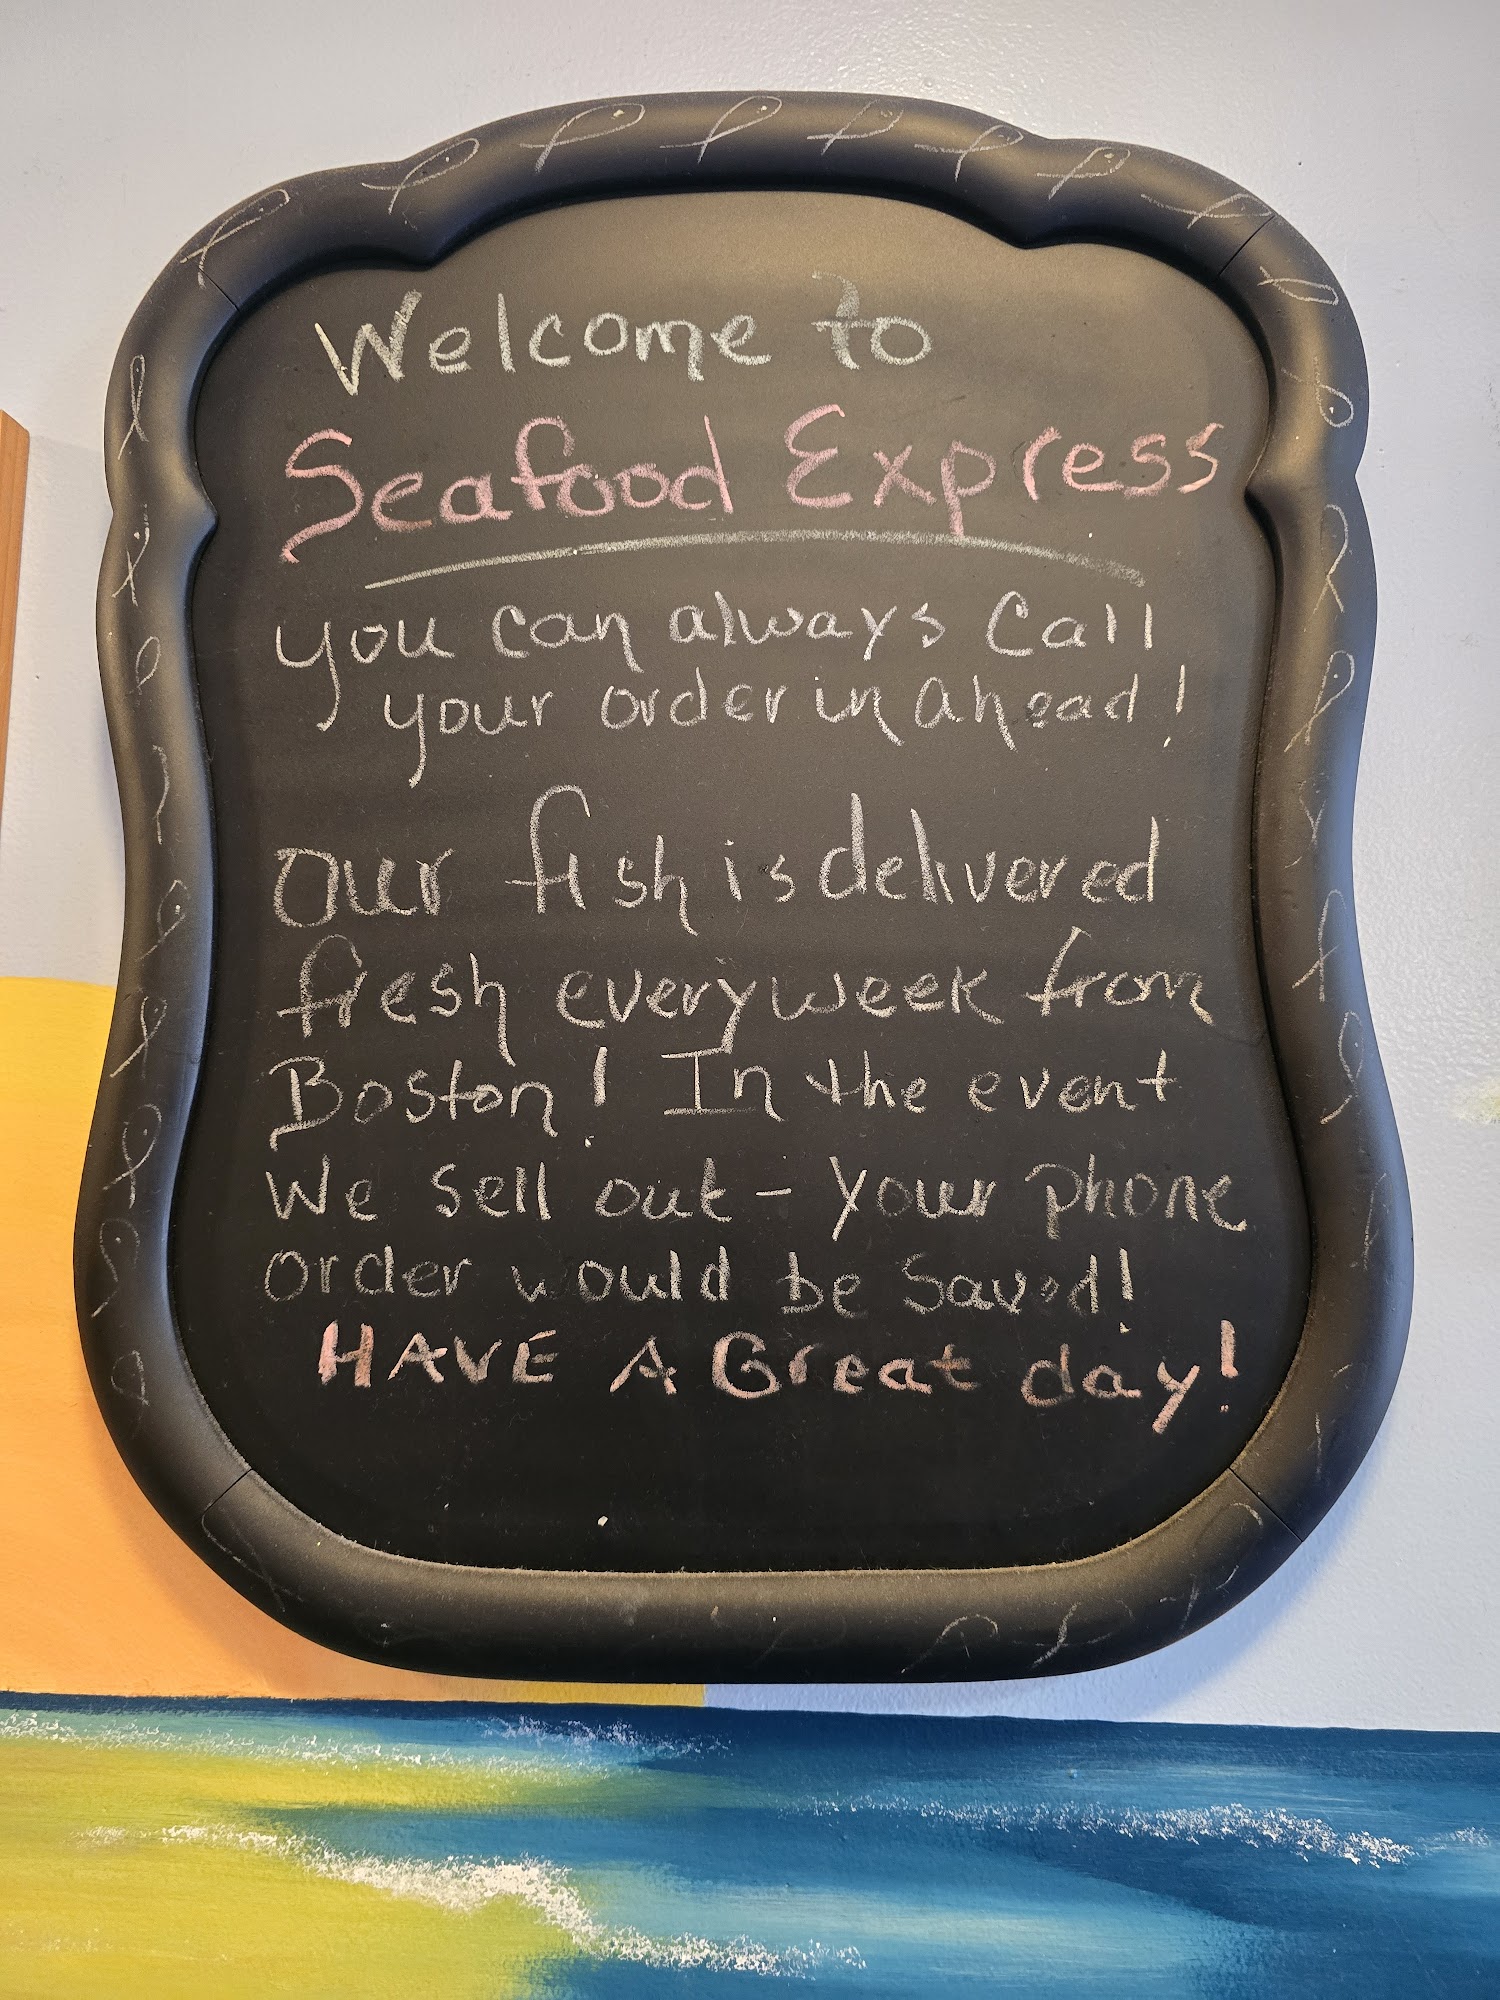 Welcome to
Seafood Express
you can always Call
your order in ahead!
Our fish is delivered
fresh every week from
Boston! In the event
We sell out - your phone
order would be saved!
HAVE A Great day!